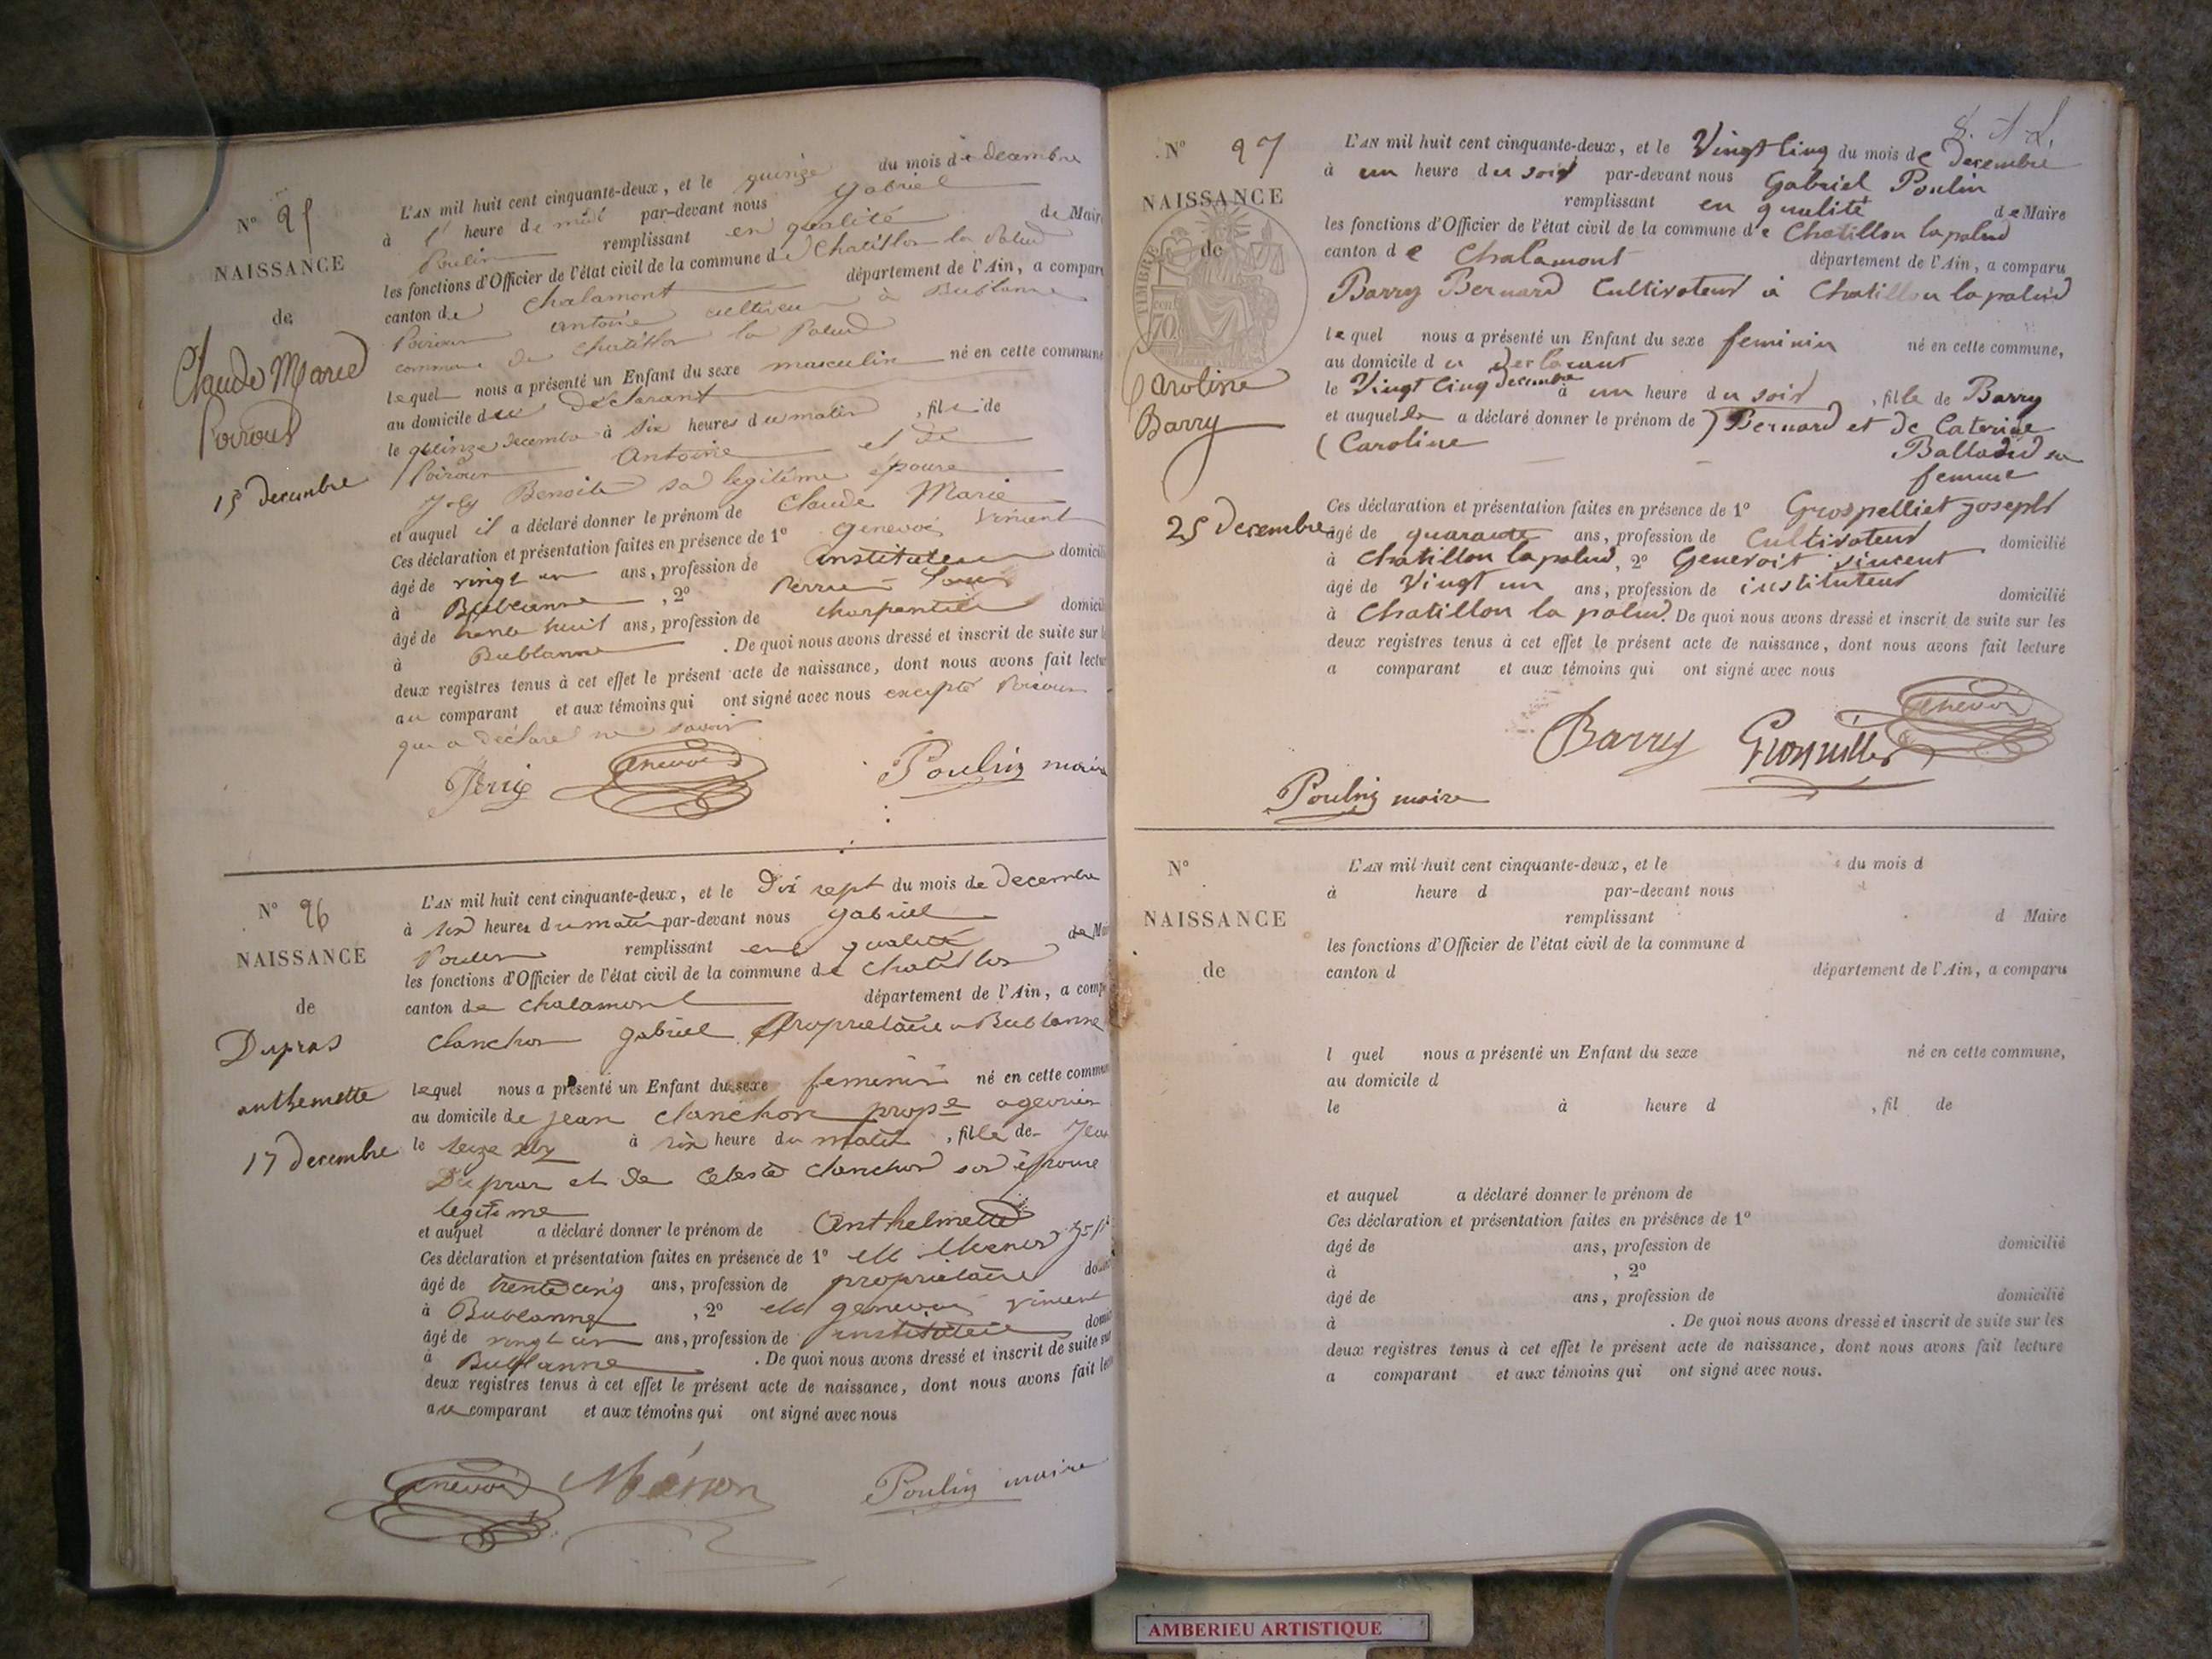 N° 95
NAISSANCE
de
Claude Marie
Poiroux
15 decembre
L'AN mil huit cent cinquante-deux, et le quinze du mois de decembre
à heure de midi par-devant nous Gabriel
Poulin remplissant en qualité de Maire
les fonctions d'Officier de l'état civil de la commune de Chatillon la Palud
canton de Chalamont département de l'Ain, a comparu
antoine à Bublanne
commune de Chatillon la Palud
lequel nous a présenté un Enfant du sexe masculin né en cette commune
au domicile du déclarant
le quinze decembre à six heures du matin, fils de
Antoine et de
Joly Benoite sa legitime épouse
et auquel il a déclaré donner le prénom de Claude Marie
Ces déclaration et présentation faites en présence de 1° Genevois Vincent
âgé de vingt un ans, profession de instituteur domicilié
à Bublanne, 2° Perrin Louis
âgé de trente huit ans, profession de charpentier domicilié
à Bublanne. De quoi nous avons dressé et inscrit de suite sur les
deux registres tenus à cet effet le présent acte de naissance, dont nous avons fait lecture
au comparant et aux témoins qui ont signé avec nous excepté
qui a déclaré ne savoir
Genevois Poulin maire
N° 96
NAISSANCE
de
Dupras
anthemette
17 decembre
L'AN mil huit cent cinquante-deux, et le Dix sept du mois de decembre
à six heures du matin par-devant nous gabriel
Poulin remplissant en qualité de Maire
les fonctions d'Officier de l'état civil de la commune de Chatillon
canton de chalamont département de l'Ain, a comparu
Clanchon gabriel Proprietaire a Bublanne
lequel nous a présenté un Enfant du sexe feminin né en cette commune
au domicile de jean clanchon
le seize à six heure du matin, fille de Jean
Dupras et de Celeste Clanchon son épouse
legitime
et auquel a déclaré donner le prénom de Anthelmette
Ces déclaration et présentation faites en présence de 1°
âgé de trente cinq ans, profession de proprietaire
à Bublanne, 2° genevois vincent
âgé de vingt un ans, profession de instituteur
à Bublanne. De quoi nous avons dressé et inscrit de suite sur
deux registres tenus à cet effet le présent acte de naissance, dont nous avons fait lecture
au comparant et aux témoins qui ont signé avec nous
Genevois Poulin maire
N° 97
NAISSANCE
de
TIMBRE
70
Caroline
Barry
25 decembre
L'AN mil huit cent cinquante-deux, et le Vingt Cinq du mois de decembre
à un heure du soir par-devant nous Gabriel Poulin
remplissant en qualité de Maire
les fonctions d'Officier de l'état civil de la commune de Chatillon la palud
canton de Chalamont département de l'Ain, a comparu
Barry Bernard Cultivateur à Chatillon la palud
lequel nous a présenté un Enfant du sexe feminin né en cette commune,
au domicile du declarant
le Vingt Cinq decembre à un heure du soir, fille de Barry
et auquel a déclaré donner le prénom de ) Bernard et de Caterine
( Caroline
sa
femme
Ces déclaration et présentation faites en présence de 1° Grospellier joseph
âgé de quarante ans, profession de Cultivateur domicilié
à Chatillon la palud, 2° Genevois vincent
âgé de Vingt un ans, profession de instituteur domicilié
à Chatillon la palud. De quoi nous avons dressé et inscrit de suite sur les
deux registres tenus à cet effet le présent acte de naissance, dont nous avons fait lecture
a comparant et aux témoins qui ont signé avec nous
Genevois
Barry
Poulin maire
N°
NAISSANCE
de
L'AN mil huit cent cinquante-deux, et le du mois d
à heure d par-devant nous
remplissant d Maire
les fonctions d'Officier de l'état civil de la commune d
canton d département de l'Ain, a comparu
l quel nous a présenté un Enfant du sexe né en cette commune,
au domicile d
le à heure d , fil de
et auquel a déclaré donner le prénom de
Ces déclaration et présentation faites en présence de 1°
âgé de ans, profession de domicilié
à , 2°
âgé de ans, profession de domicilié
à . De quoi nous avons dressé et inscrit de suite sur les
deux registres tenus à cet effet le présent acte de naissance, dont nous avons fait lecture
a comparant et aux témoins qui ont signé avec nous.
AMBERIEU ARTISTIQUE